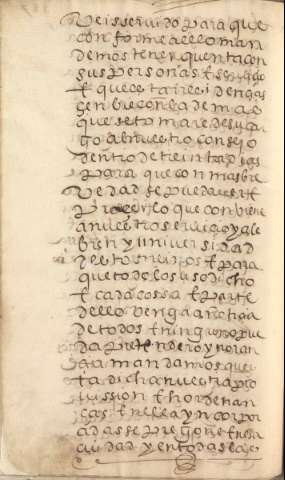 veis servido para que
conforme a ello man
demos tener quenta con
sus personas e servicio
e que esta recivi dengas
en breve con la de mas
que se tomare des luga
go al nuestro consejo
dentro de treinta dias
para que con mas bre
vedad se pueda ver e
proveer lo que combiene
a nuestro servicio y al
bien y universidad
destos reinos e para
que todo lo suso dicho
e cada cossa e parte
dello venga a notiçia
de todos e ninguno pue
da pretender ynoran
çia mandamos que
esta dicha nuestra pro
vission e hordenan
ças e en ella yncorpor
adas se pregone en esa
ciudad y en todas las